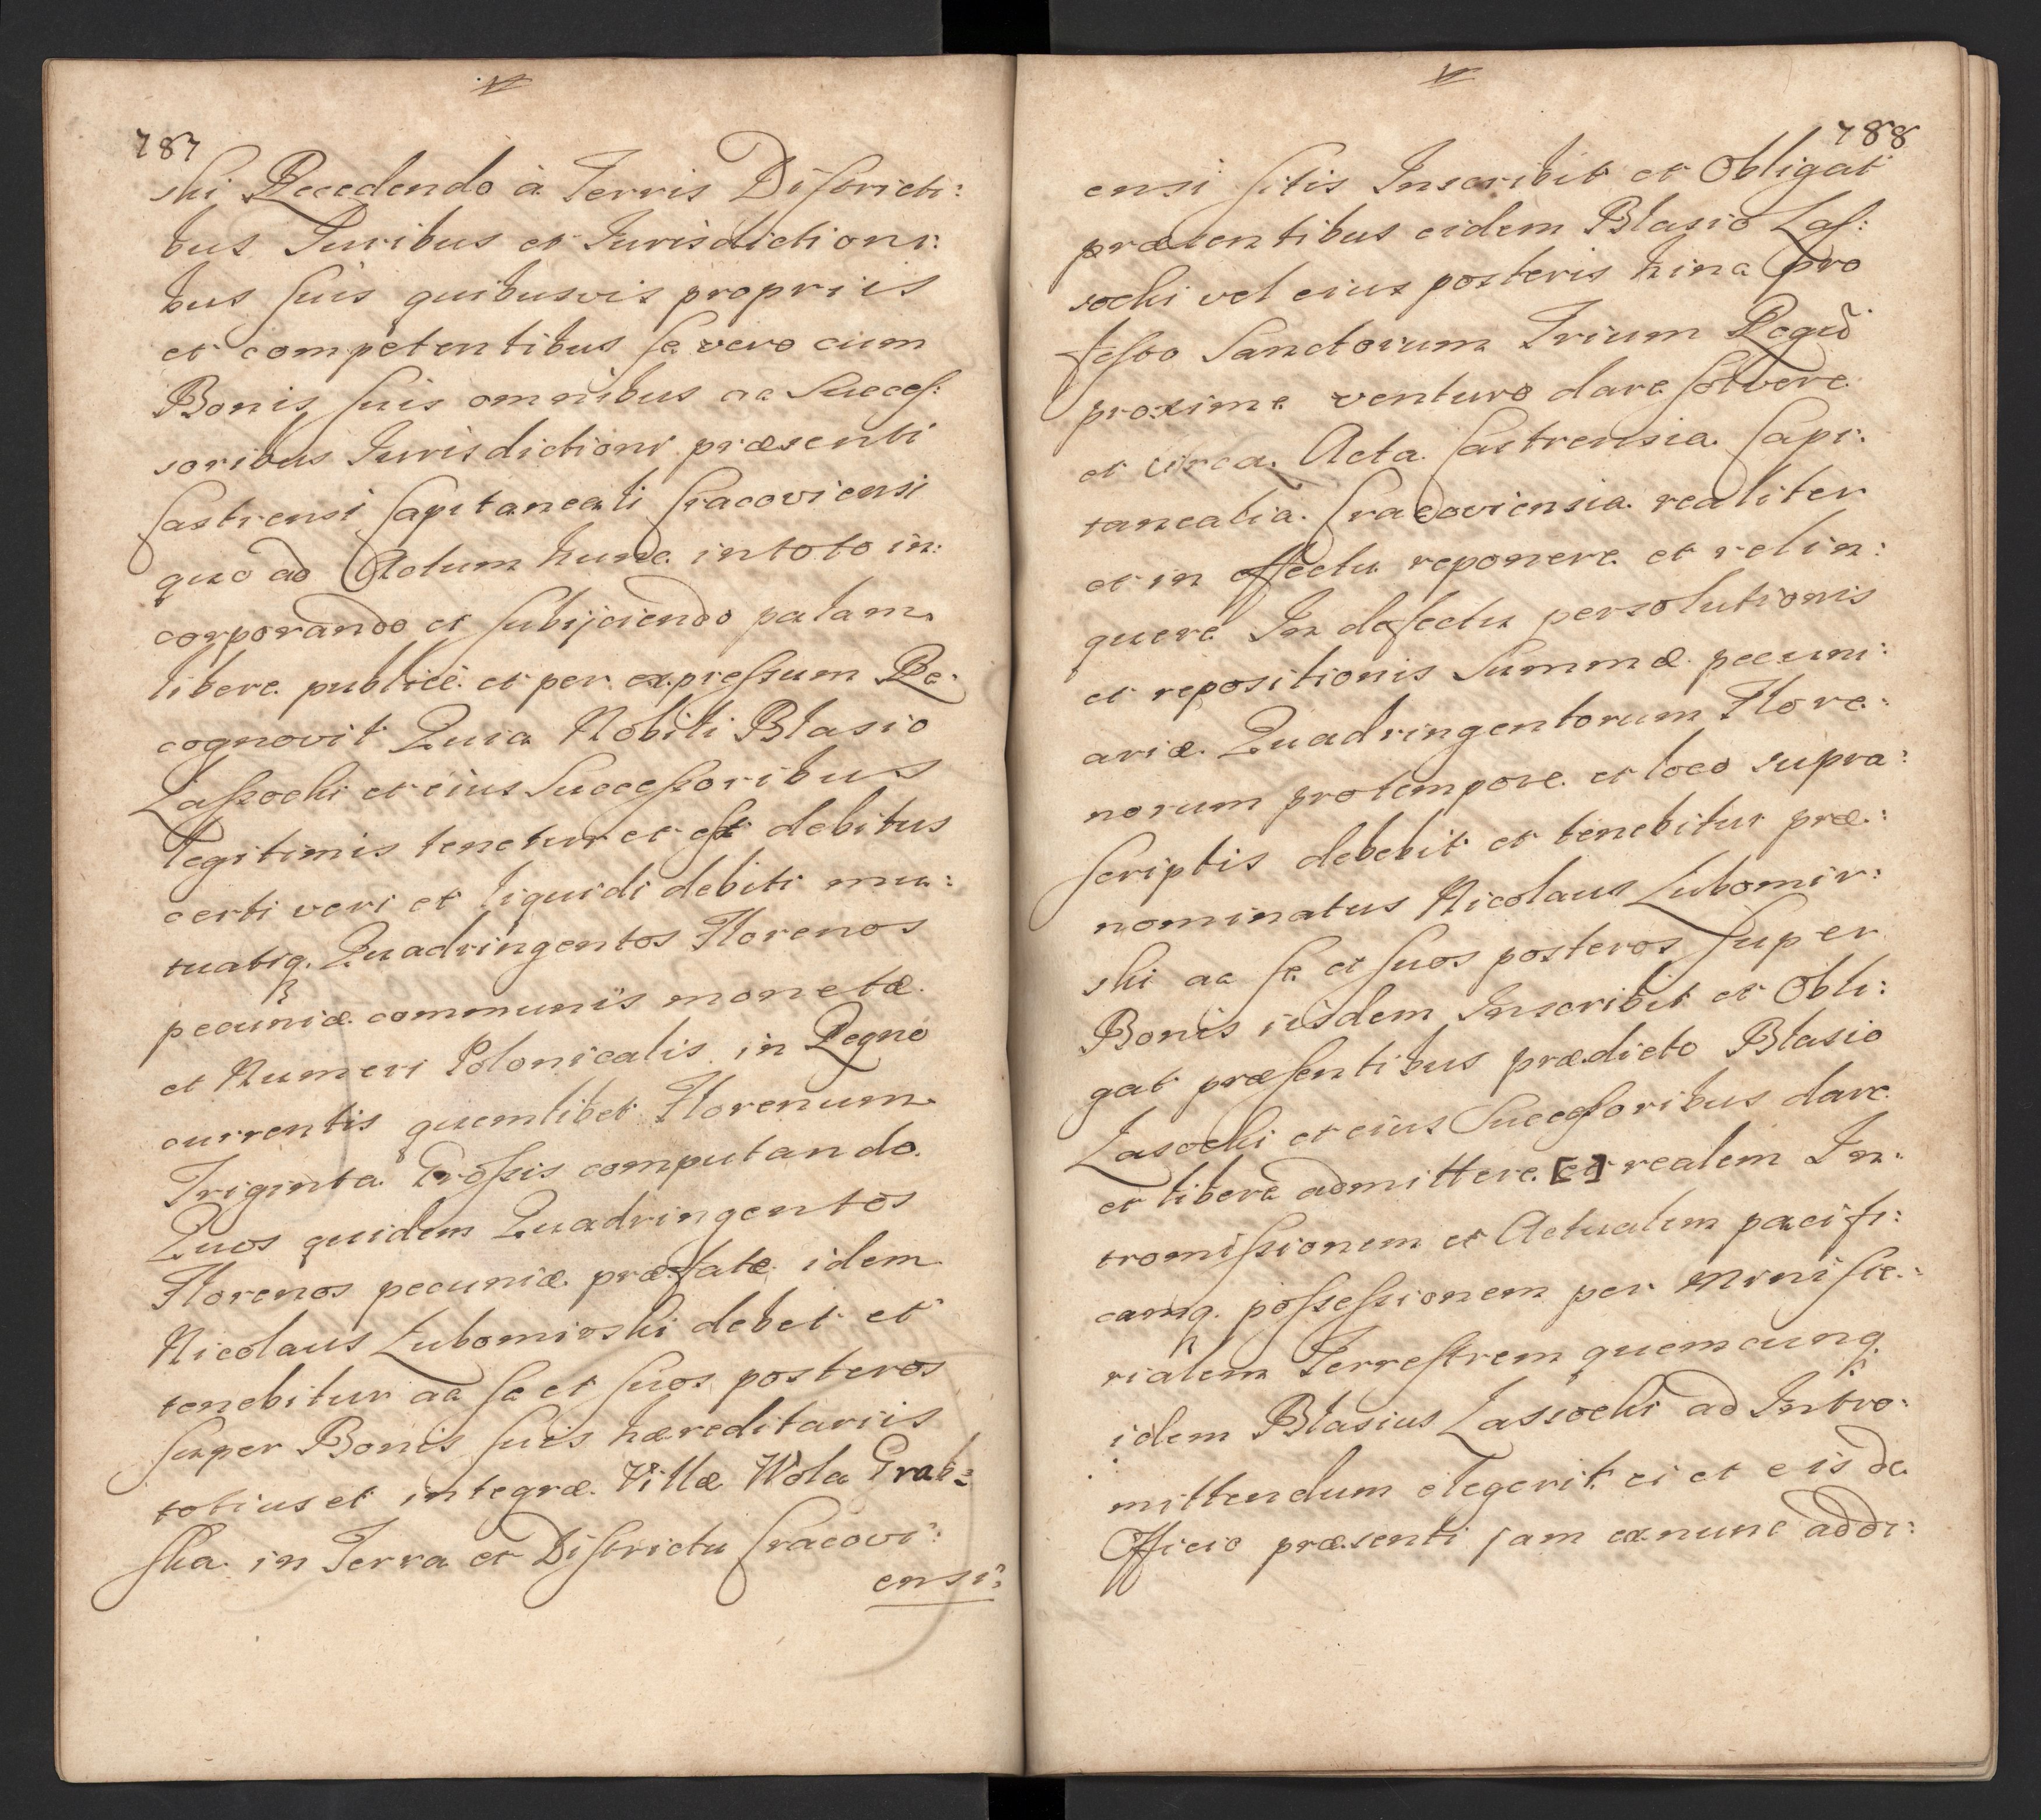 787
ski Recedendo à Terris Districti:
bus Juribus et Jurisdictioni:
bus suis quibusvis propriis
et competentibus se vero cum
Bonis suis omnibus ac Succes:
soribus Jurisdictioni præsenti
Castrensi Capitaneali Cracoviensi
quo ad Actum hunc in toto in:
corporando et subijciendo palam
libere publicè et per expressum Re:
cognovit Quia Nobili Blasio
Lassocki et eius Successoribus
legitimis tenetur et est debitus
certi veri et liquidi debiti mu:
tuatiq. Quadringentos Florenos
pecuniæ communis monetæ
et Numeri Polonicalis in Regno
currentis quemlibet Florenum
Triginta Grossis computando
Quos quidem Quadringentos
Florenos pecuniæ præfatæ idem
Nicolaus Lubomirski debet et
tenebitur ac se et suos posteros
super Bonis suis hæreditariis
totius et integræ Villæ Wola Grab:
ska in Terra et Districtu Cracovi:
ensi:
788
ensi sitis Inscribit et Obligat
præsentibus eidem Blasio Las:
socki vel eius posteris hinc pro
festo Sanctorum Trium Regũ
proxime venturo dare solvere
et circa Acta Castrensia Capi:
tanealia Cracoviensia realiter
et in effectu reponere et relin:
quere In defectu persolutionis
et repositionis Summæ pecuni:
ariæ Quadringentorum Flore:
norum pro tempore et loco supra:
scriptis debebit et tenebitur præ:
nominatus Nicolaus Lubomir:
ski ac se et suos posteros super
Bonis iisdem Inscribit et Obli:
gat præsentibus prædicto Blasio
Lasocki et eius Successoribus dare
et libere admittere [et] realem In:
tromissionem et Actualem pacifi:
camq. possessionem per Ministe:
rialem Terrestrem quemcunq.
idem Blasius Lassocki ad Intro:
mittendum elegerit ei et eis de
Officio præsenti jam ex nunc addi: